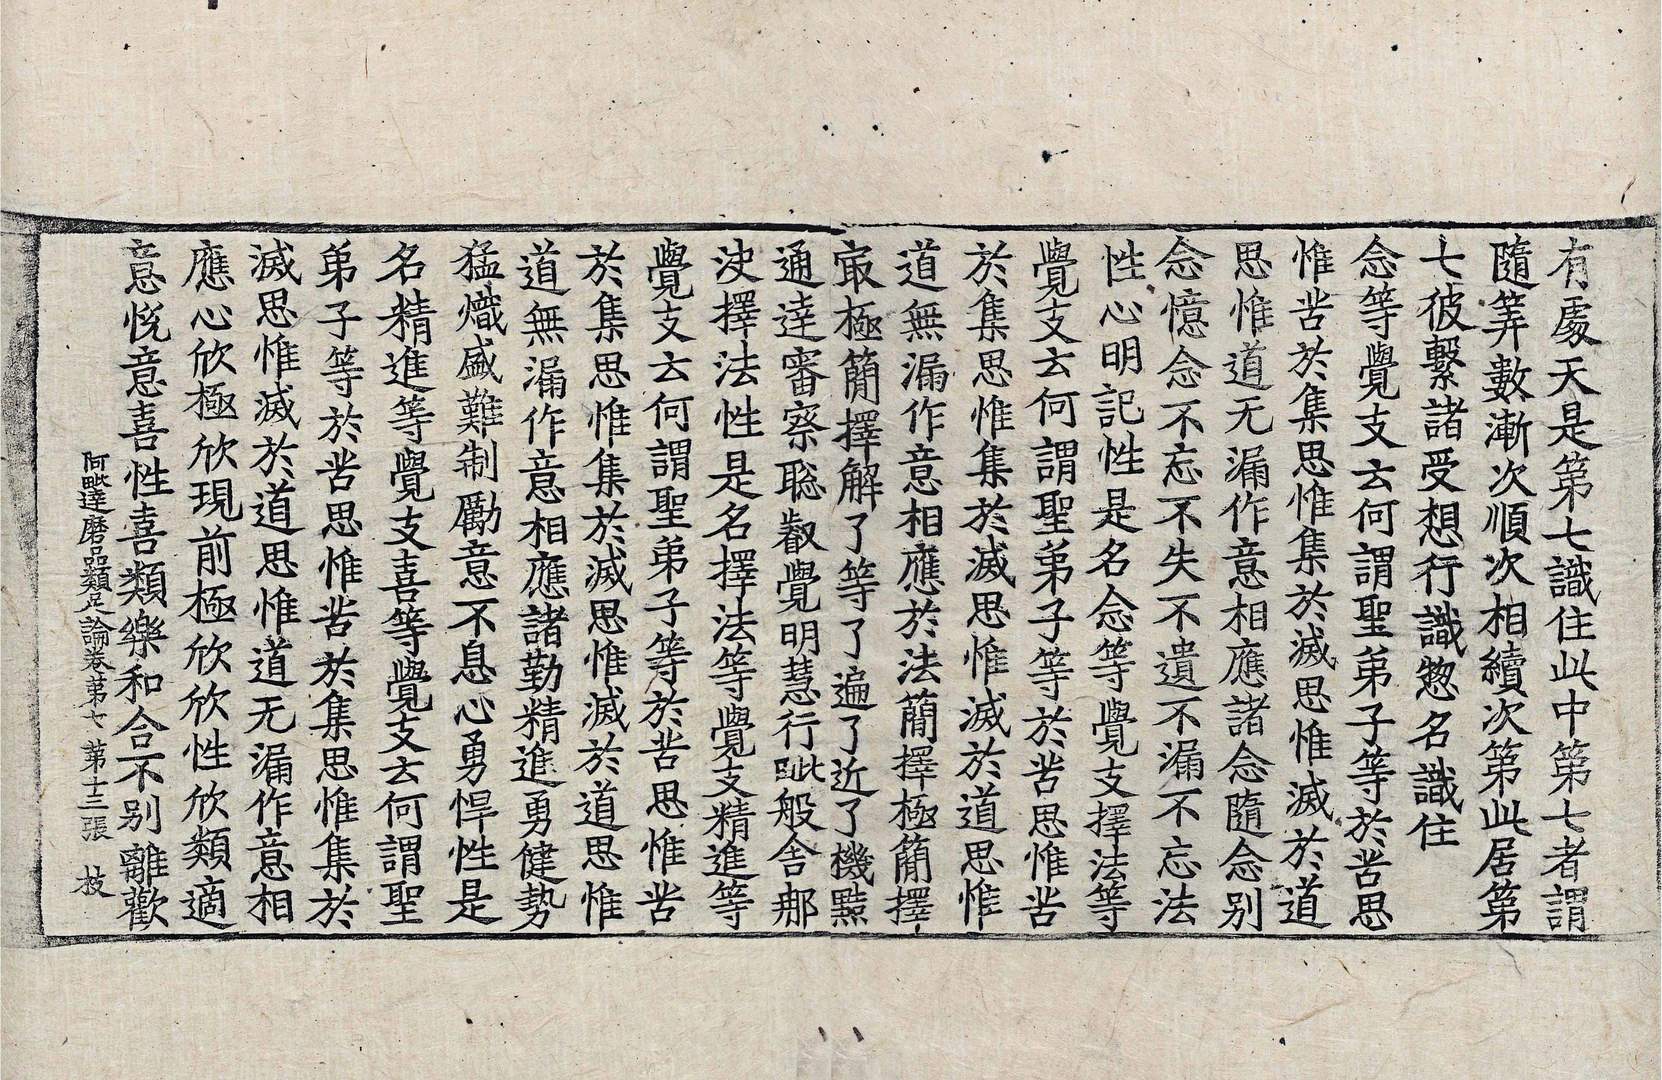 有處天是第七識住此中第七者謂
隨筭數漸次順次相續次第此居第
七彼繫諸受想行識惣名識住
念等覺支云何謂聖弟子等於苦思
惟苦於集思惟集於滅思惟滅於道
思惟道无漏作意相應諸念隨念別
念憶念不忘不失不遺不漏不忘法
性心明記性是名念等覺支擇法等
覺支云何謂聖弟子等於苦思惟苦
於集思惟集於滅思惟滅於道思惟
道無漏作意相應於法簡擇極簡擇
㝡極簡擇解了等了遍了近了機黠
通達審察聡叡覺明慧行毗般舍那
决擇法性是名擇法等覺支精進等
覺支云何謂聖弟子等於苦思惟苦
於集思惟集於滅思惟滅於道思惟
道無漏作意相應諸勤精進勇健勢
猛熾盛難制勵意不息心勇悍性是
名精進等覺支喜等覺支云何謂聖
弟子等於苦思惟苦於集思惟集於
滅思惟滅於道思惟道无漏作意相
應心欣極欣現前極欣欣性欣類適
意悅意喜性喜類樂和合不别離歡
阿毗達磨品類足論卷第七 第十三張 技